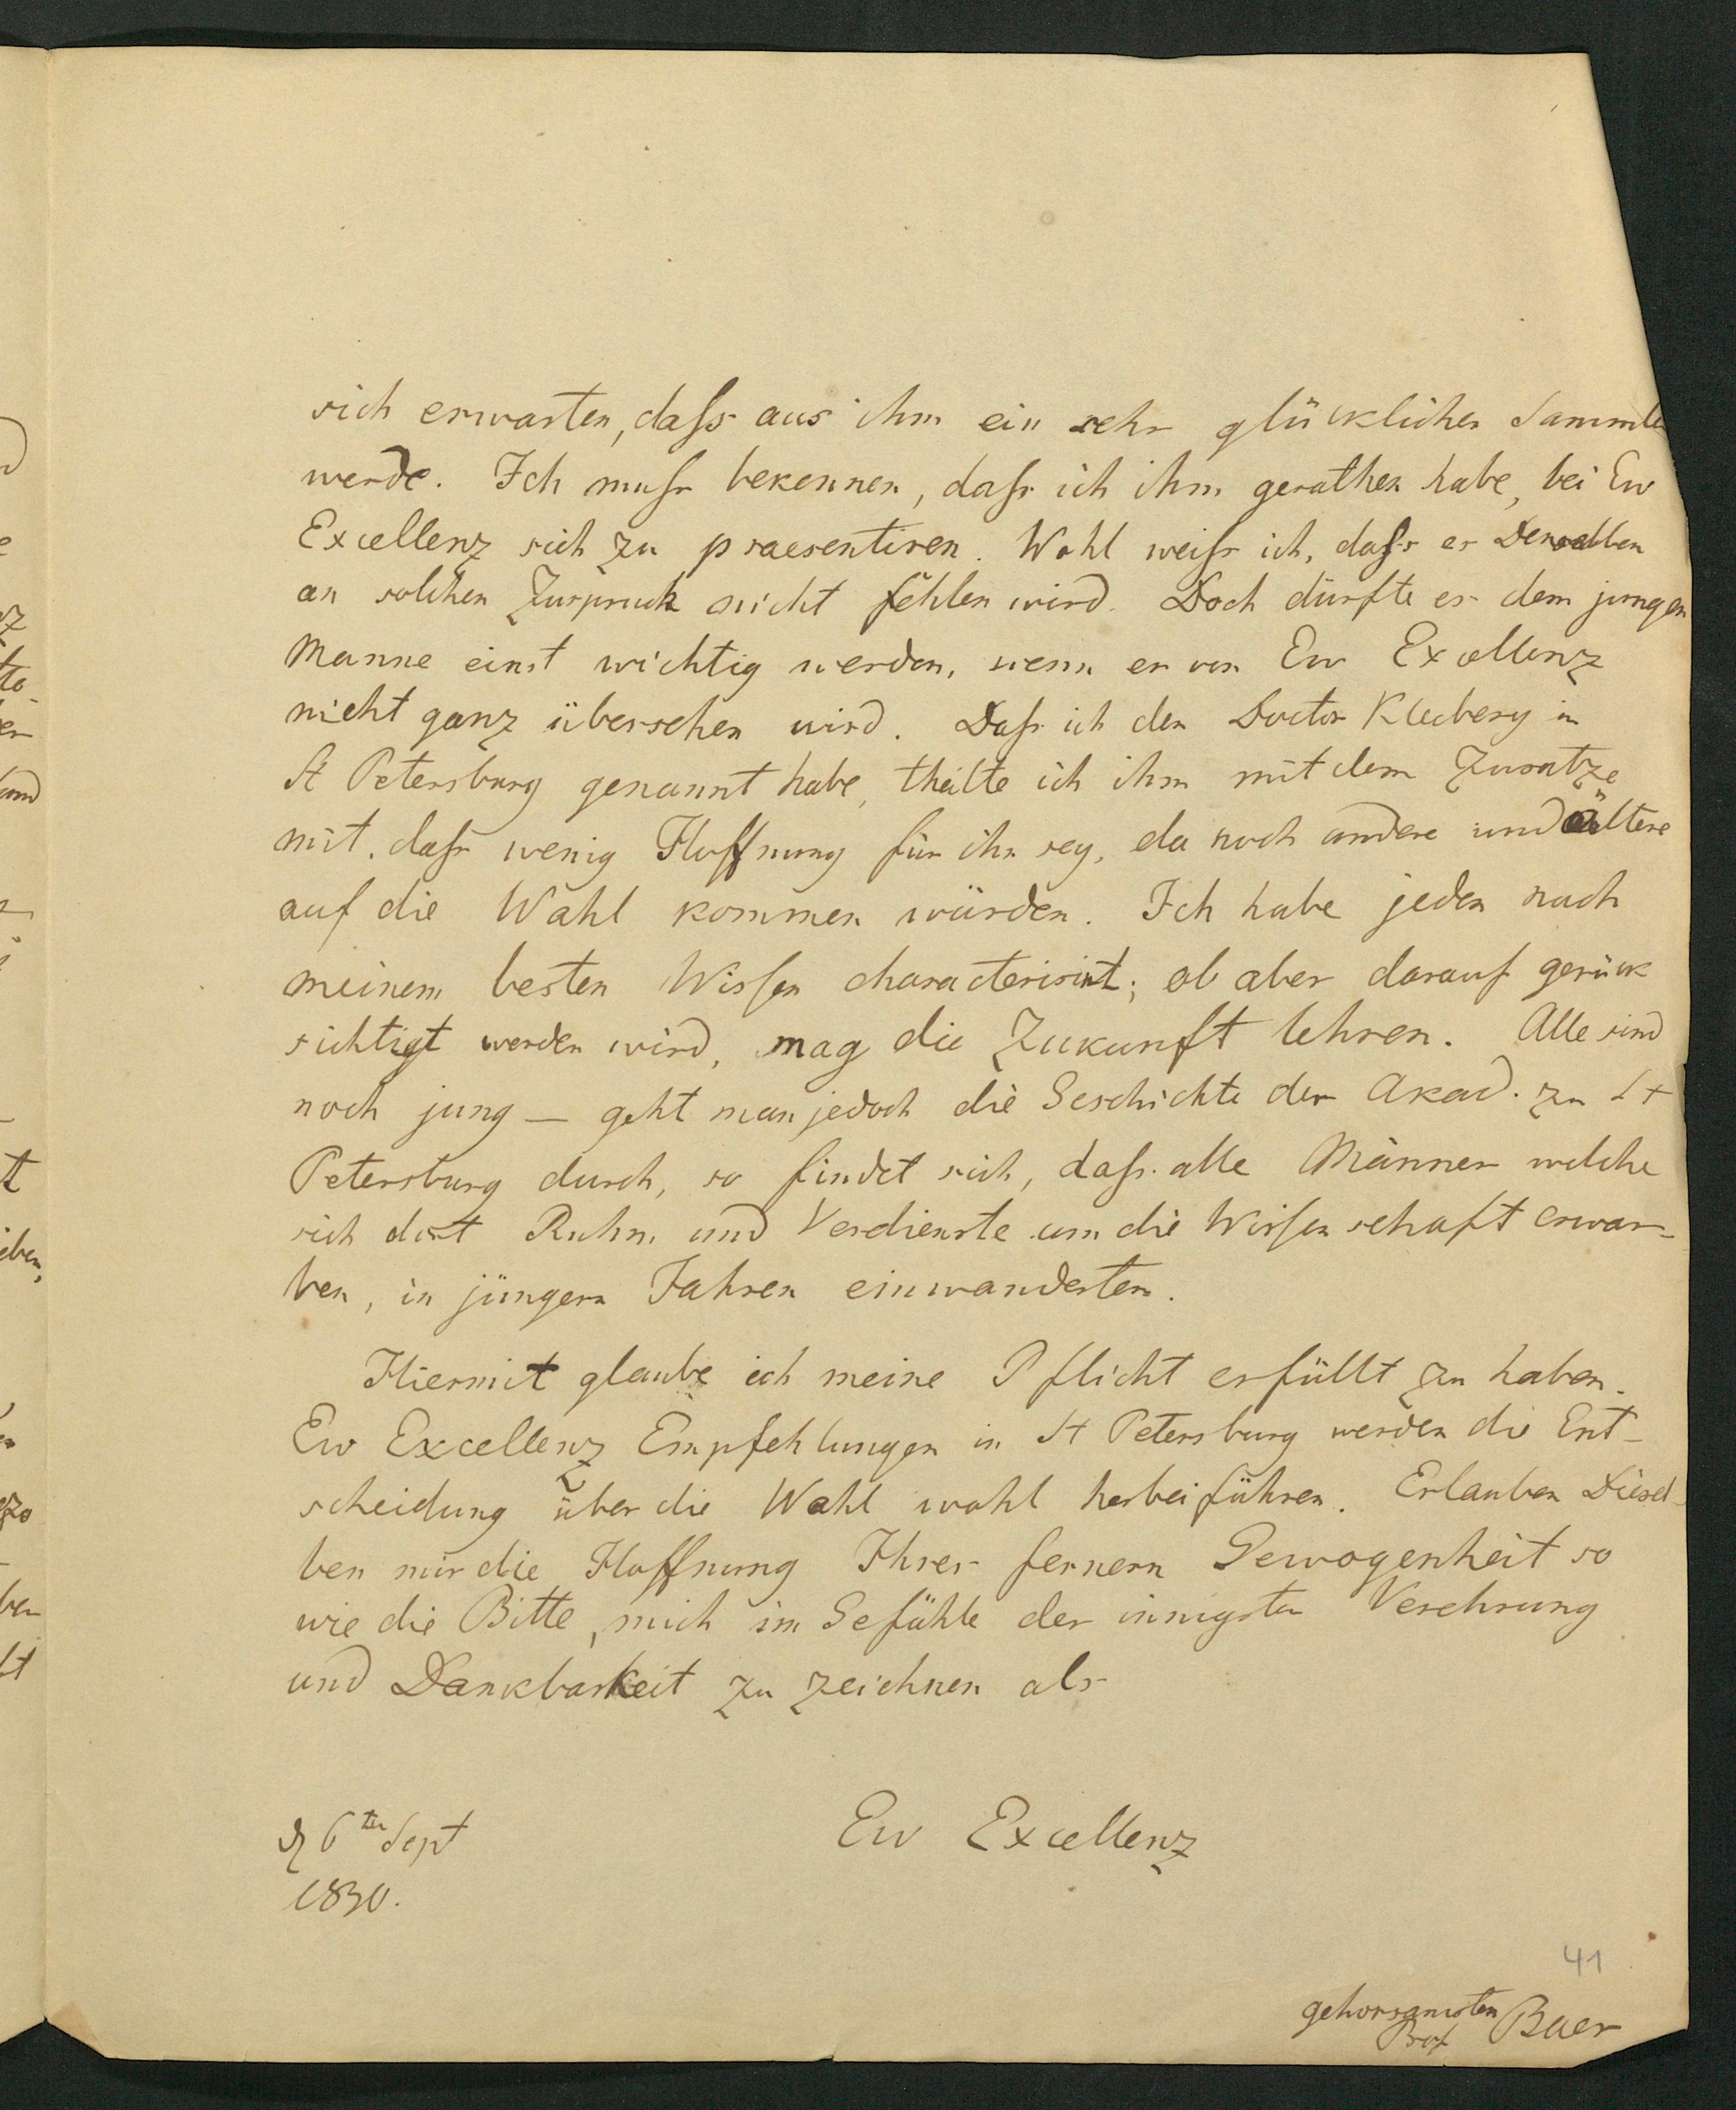 sich erwarten, daſs aus ihm ein sehr glücklicher Sammler
werde. Ich muſs bekennen, daſs ich ihm gerathen habe, bei Ew
Excellenz sich zu praesentiren. Wohl weiſs ich, daſs es Denselben
an solchen Zuspruch nicht fehlen wird. Doch dürfte es dem jungen
Manne einst wichtig werden, wenn er von Ew Excellenz
nicht ganz übersehen wird. Daſs ich den Doctor Kleeberg in
St Petersburg genannt habe, theilte ich ihm mit dem Zusatze
mit, daſs wenig Hoffnung für ihn sey, da noch andere und ältere
auf die Wahl kommen würden. Ich habe jeden nach
meinem besten Wiſsen characterisirt; ob aber darauf gerück
sichtigt werden wird, mag die Zukunft lehren. Alle sind
noch jung — geht man jedoch die Geschichte der Akad. zu St
Petersburg durch, so findet sich, daſs alle Männer welche
sich dort Ruhm und Verdienste um die Wiſsenschaft erwar-
ben, in jüngern Jahren einwanderten.
Hiermit glaube ich meine Pflicht erfüllt zu haben.
Ew Excellenz Empfehlungen in St Petersburg werden die Ent-
scheidung über die Wahl wohl herbeiführen. Erlauben Diesel-
ben mir die Hoffnung Ihrer fernern Gewogenheit so
wie die Bitte, mich im Gefühle der innigsten Verehrung
und Dankbarkeit zu zeichnen als
Ew Excellenz
d 6ten Sept
1830.
41
gehorsamsten
Prof Baer